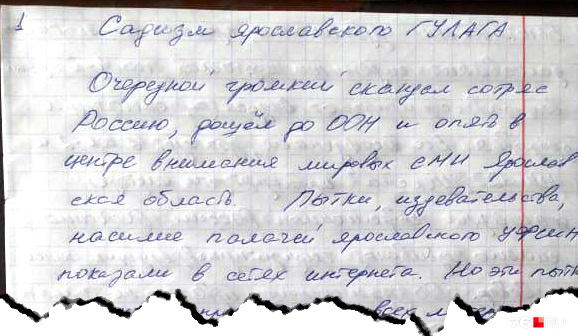 1 Садизм ярославского ГУЛАГА.
Очередной громкий скандал сотряс
Россию, дошёл до ООН и опять в
центре внимания мировых СМИ Ярослав
ская область. Пытки, издевательства,
насилие палачей ярославского УФСИН
показали в сетях интернета. Но эти пытк
всех